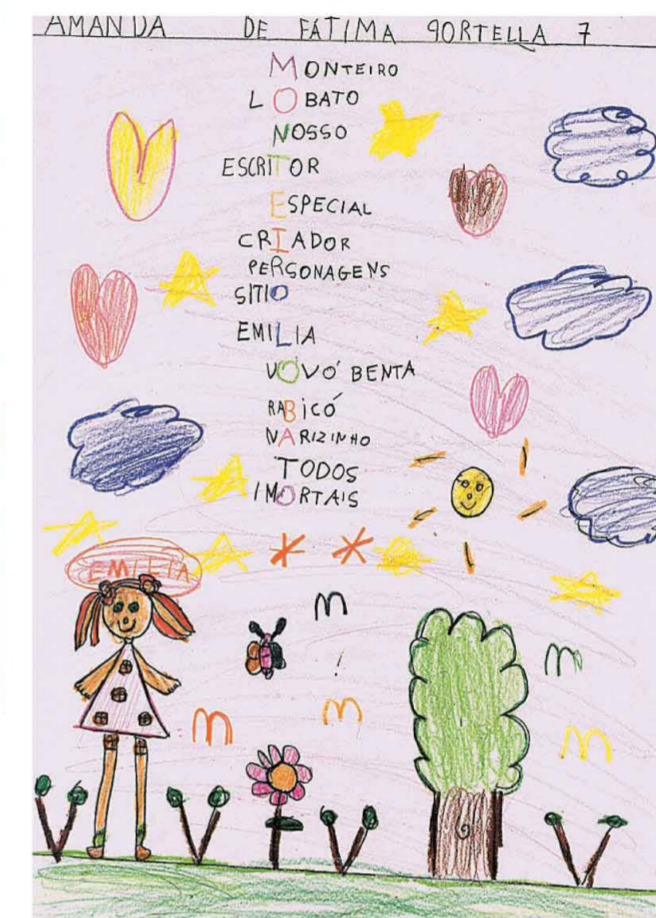 AMANDA DE FÁTIMA GORTELLA 7
MONTEIRO
LOBATO
NOSSO
ESCRITOR
ESPECIAL
CRIADOR
PERSONAGENS
SITIO
EMILIA
VOVÓ BENTA
RABICÓ
NARIZINHO
TODOS
IMORTAIS
EMILIA